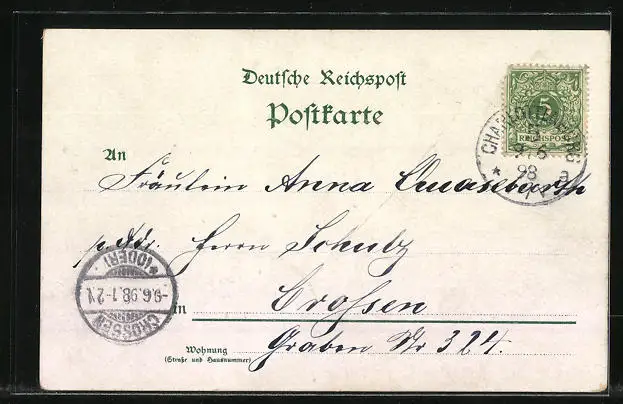 Deutsche Reichspost
Postkarte
5
REICHSPOST
CHARLOTTENBURG
9 6
98
* a
An
Fräulein Anna
p. Adr. Herrn Schulz
CROSSEN
-9.6.98.1-2
* (ODER) *
in Crossen
Graben Nr 324.
Wohnung
(Straße und Hausnummer)